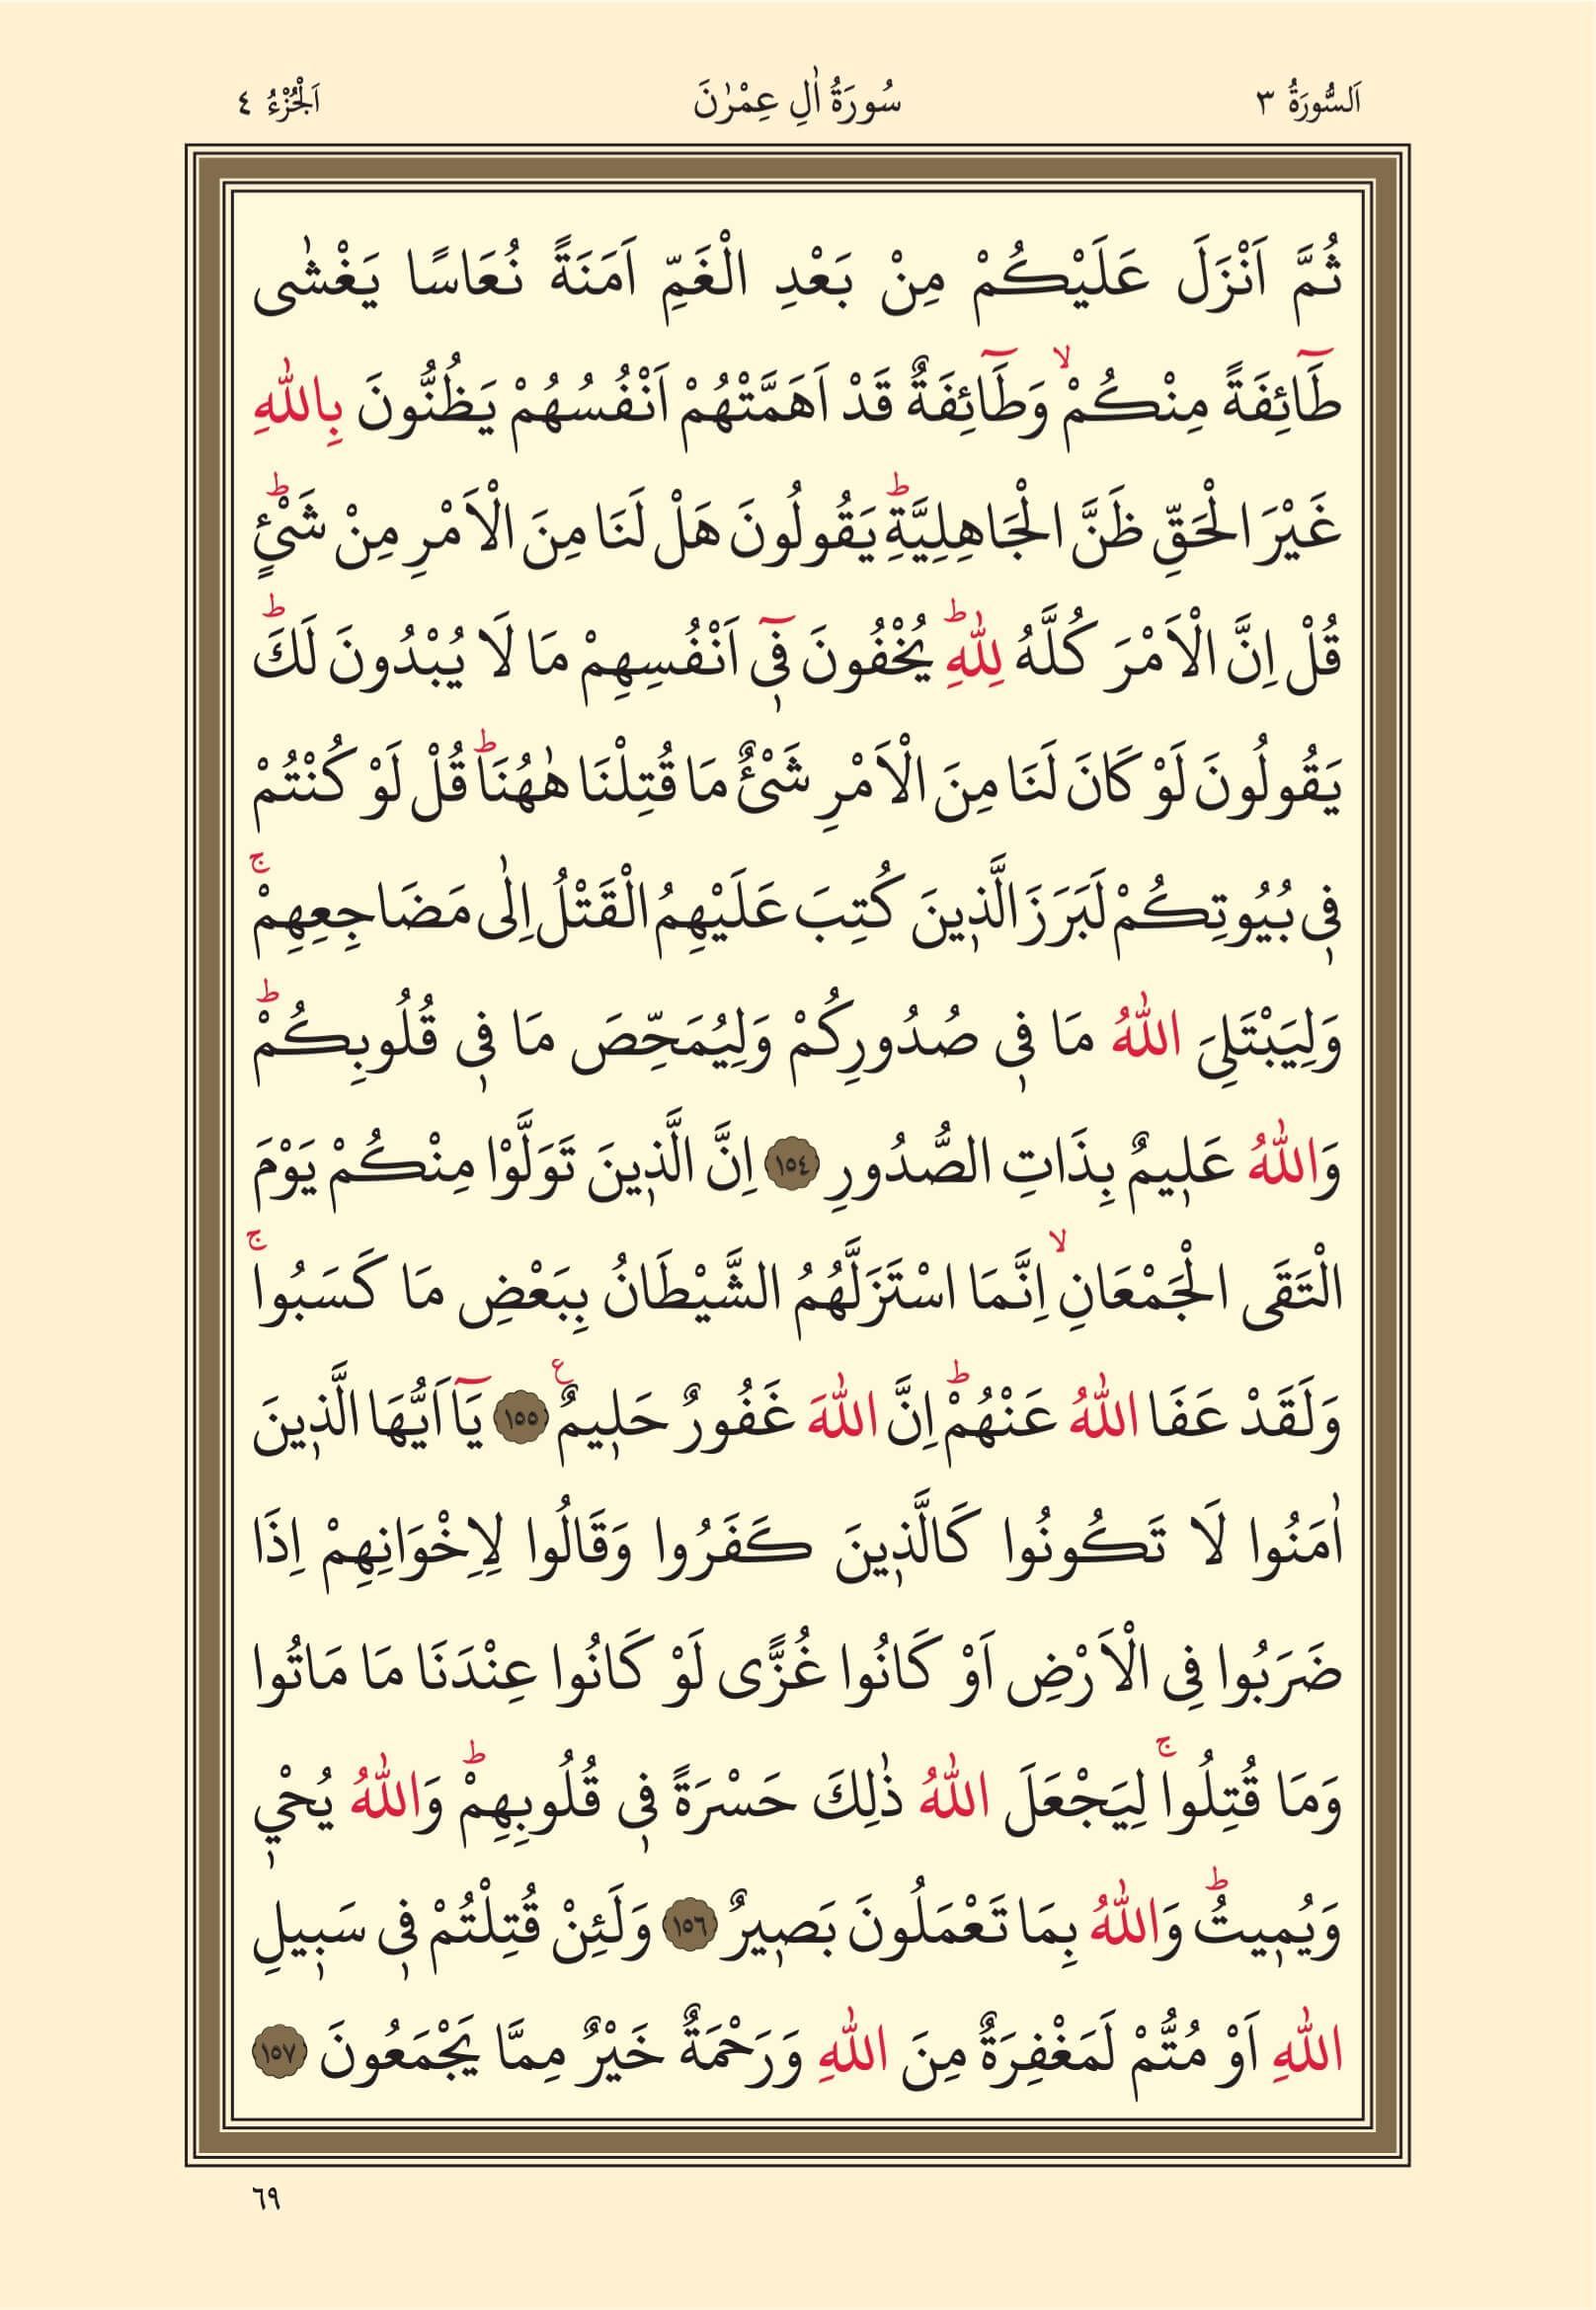 اَلسُّورَةُ ٣ سُورَةُ اٰلِ عِمْرٰنَ اَلْجُزْءُ ٤
ثُمَّ اَنْزَلَ عَلَيْكُمْ مِنْ بَعْدِ الْغَمِّ اَمَنَةً نُعَاسًا يَغْشٰى
طَٓائِفَةً مِنْكُمْۙ وَطَٓائِفَةٌ قَدْ اَهَمَّتْهُمْ اَنْفُسُهُمْ يَظُنُّونَ بِاللّٰهِ
غَيْرَ الْحَقِّ ظَنَّ الْجَاهِلِيَّةِۜ يَقُولُونَ هَلْ لَنَا مِنَ الْاَمْرِ مِنْ شَيْءٍۜ
قُلْ اِنَّ الْاَمْرَ كُلَّهُ لِلّٰهِۜ يُخْفُونَ ف۪ٓي اَنْفُسِهِمْ مَا لَا يُبْدُونَ لَكَۜ
يَقُولُونَ لَوْ كَانَ لَنَا مِنَ الْاَمْرِ شَيْءٌ مَا قُتِلْنَا هٰهُنَاۜ قُلْ لَوْ كُنْتُمْ
ف۪ي بُيُوتِكُمْ لَبَرَزَ الَّذ۪ينَ كُتِبَ عَلَيْهِمُ الْقَتْلُ اِلٰى مَضَاجِعِهِمْۚ
وَلِيَبْتَلِيَ اللّٰهُ مَا ف۪ي صُدُورِكُمْ وَلِيُمَحِّصَ مَا ف۪ي قُلُوبِكُمْۜ
وَاللّٰهُ عَل۪يمٌ بِذَاتِ الصُّدُورِ ١٥٤ اِنَّ الَّذ۪ينَ تَوَلَّوْا مِنْكُمْ يَوْمَ
الْتَقَى الْجَمْعَانِۙ اِنَّمَا اسْتَزَلَّهُمُ الشَّيْطَانُ بِبَعْضِ مَا كَسَبُواۚ
وَلَقَدْ عَفَا اللّٰهُ عَنْهُمْۜ اِنَّ اللّٰهَ غَفُورٌ حَل۪يمٌ۟ ١٥٥ يَٓا اَيُّهَا الَّذ۪ينَ
اٰمَنُوا لَا تَكُونُوا كَالَّذ۪ينَ كَفَرُوا وَقَالُوا لِاِخْوَانِهِمْ اِذَا
ضَرَبُوا فِي الْاَرْضِ اَوْ كَانُوا غُزًّى لَوْ كَانُوا عِنْدَنَا مَا مَاتُوا
وَمَا قُتِلُواۚ لِيَجْعَلَ اللّٰهُ ذٰلِكَ حَسْرَةً ف۪ي قُلُوبِهِمْۜ وَاللّٰهُ يُحْي۪
وَيُم۪يتُۜ وَاللّٰهُ بِمَا تَعْمَلُونَ بَص۪يرٌ ١٥٦ وَلَئِنْ قُتِلْتُمْ ف۪ي سَب۪يلِ
اللّٰهِ اَوْ مُتُّمْ لَمَغْفِرَةٌ مِنَ اللّٰهِ وَرَحْمَةٌ خَيْرٌ مِمَّا يَجْمَعُونَ ١٥٧
٦٩